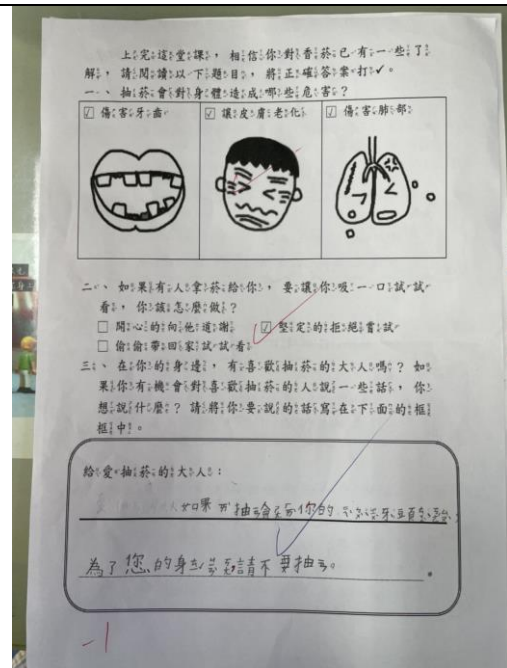 上完這堂課，相信你對香菸已有一些了
解，請閱讀以下題目，將正確答案打✓。
一、抽菸會對身體造成哪些危害？
☑ 傷害牙齒
☑ 讓皮膚老化
☑ 傷害肺部
二、如果有人拿菸給你，要讓你吸一口試試
看，你該怎麼做？
□ 開心的向他道謝
☑ 堅定的拒絕嘗試
□ 偷偷帶回家試試看
三、在你的身邊，有喜歡抽菸的大人嗎？如
果你有機會對喜歡抽菸的人說一些話，你
想說什麼？請將你要說的話寫在下面的框
框中。
給愛抽菸的大人：
如果 抽 你的
為了您的身 請不要抽 。
-1